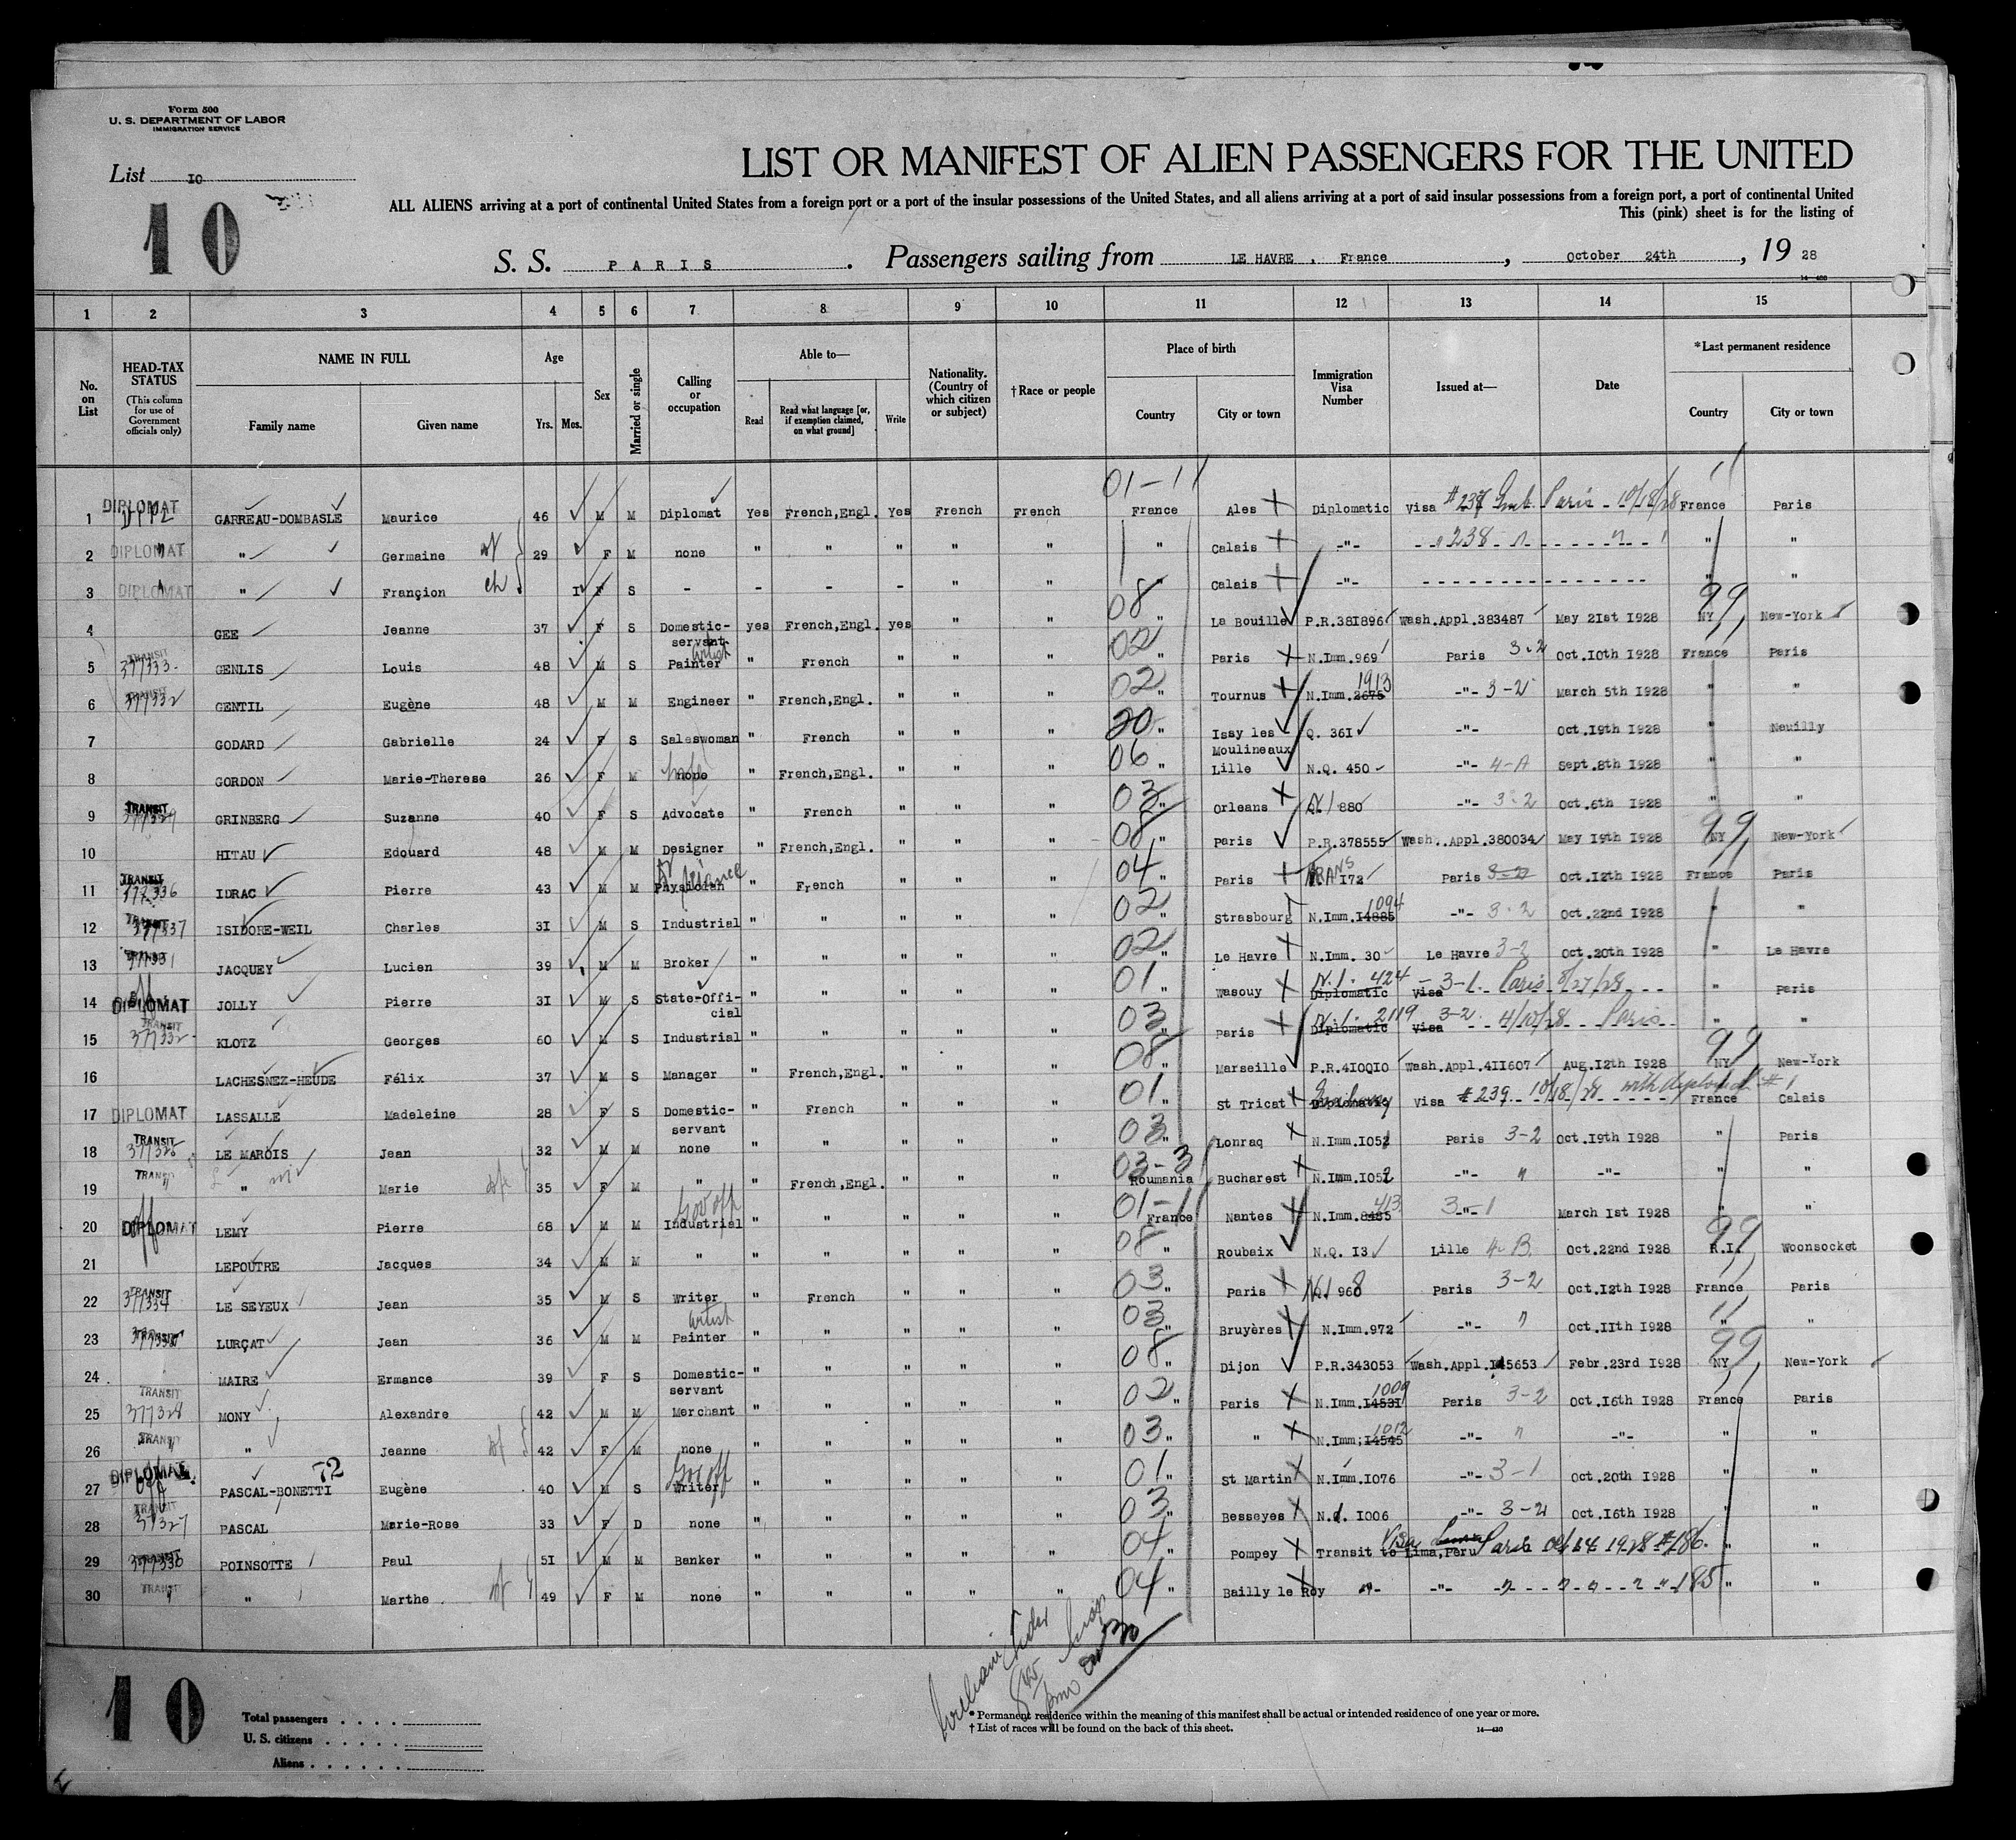 Form 500
U. S. DEPARTMENT OF LABOR
IMMIGRATION SERVICE
List 10
10
LIST OR MANIFEST OF ALIEN PASSENGERS FOR THE UNITED
ALL ALIENS arriving at a port of continental United States from a foreign port or a port of the insular possessions of the United States, and all aliens arriving at a port of said insular possessions from a foreign port, a port of continental United
This (pink) sheet is for the listing of
S. S. PARIS. Passengers sailing from LE HAVRE, France, October 24th, 19 28
14-430
1 2 3 4 5 6 7 8 9 10 11 12 13 14 15
No. on List
HEAD-TAX STATUS (This column for use of Government officials only)
NAME IN FULL
Family name Given name
Age
Yrs. Mos.
Sex
Married or single
Calling or occupation
Able to—
Read Read what language [or, if exemption claimed, on what ground] Write
Nationality. (Country of which citizen or subject)
†Race or people
Place of birth
Country City or town
Immigration Visa Number
Issued at—
Date
*Last permanent residence
Country City or town
1 DIPLOMAT GARREAU-DOMBASLE Maurice 46 M M Diplomat Yes French,Engl. Yes French French 01-11 France Ales Diplomatic Visa #237 Emb. Paris - 10/18/28 France Paris
2 DIPLOMAT " Germaine wf 29 F M none " " " " " " Calais -"- 238 " "
3 DIPLOMAT " Françion ch I F S - - - - " " " Calais -"- " "
4 GEE Jeanne 37 F S Domestic-servant yes French,Engl. yes " " 08 " La Bouille P.R.381896 Wash.Appl.383487 May 21st 1928 99 NY New-York
5 TRANSIT 377333 GENLIS Louis 48 M S Painter artist " French " " " 02 " Paris N.Imm.969 Paris 3-2 Oct.10th 1928 France Paris
6 TRANSIT 377332 GENTIL Eugène 48 M M Engineer " French,Engl. " " " 02 " Tournus N.Imm.2675 1913 -"- 3-2 March 5th 1928 " "
7 GODARD Gabrielle 24 F S Saleswoman " French " " " 20 " Issy les Moulineaux Q. 361 -"- Oct.19th 1928 " Neuilly
8 GORDON Marie-Therese 26 F M none " French,Engl. " " " 06 " Lille N.Q. 450 -"- 4-A Sept.8th 1928 " "
9 TRANSIT 377329 GRINBERG Suzanne 40 F S Advocate " French " " " 03 " Orleans 880 -"- 3-2 Oct.6th 1928 " "
10 HITAU Edouard 48 M M Designer " French,Engl. " " " 08 " Paris P.R.378555 Wash..Appl.380034 May 19th 1928 99 NY New-York
11 TRANSIT IDRAC Pierre 43 M M Physician " French " " " 04 " Paris TRANS 172 Paris 3-2 Oct.12th 1928 France Paris
12 TRANSIT 377337 ISIDORE-WEIL Charles 31 M S Industrial " " " " " 02 " Strasbourg N.Imm.14885 1094 -"- 3-2 Oct.22nd 1928 " "
13 TRANSIT 377331 JACQUEY Lucien 39 M M Broker " " " " " 02 " Le Havre N.Imm. 30 Le Havre 3-2 Oct.20th 1928 " Le Havre
14 DIPLOMAT JOLLY Pierre 31 M S State-Official " " " " " 01 " Wasouy Diplomatic N.I. 424 Visa 3-1. Paris 9/27/28 " Paris
15 TRANSIT 377332 KLOTZ Georges 60 M S Industrial " " " " " 03 " Paris Diplomatic N.I. 2119 Visa 3-2 4/10/28 Paris " "
16 LACHESNEZ-HEUDE Félix 37 M S Manager " French,Engl. " " " 08 " Marseille P.R.410Q10 Wash.Appl.411607 Aug.12th 1928 99 NY New-York
17 DIPLOMAT LASSALLE Madeleine 28 F S Domestic-servant " French " " " 01 " St Tricat Diplomatic Visa #239 10/18/28 with diplomat #1 France Calais
18 TRANSIT 377326 LE MAROIS Jean 32 M M none " " " " " 03 " Lonraq N.Imm.1052 Paris 3-2 Oct.19th 1928 " Paris
19 TRANSIT " Marie wf 35 F M " " French,Engl. " " " 03-3 Roumania Bucharest N.Imm.1052 -"- " -"- " "
20 DIPLOMAT off LEMY Pierre 68 M M Industrial Gov off " " " " " 01-1 France Nantes N.Imm.8485 413 -"- 3-1 March 1st 1928 " "
21 LEPOUTRE Jacques 34 M M " " " " " " 08 " Roubaix N.Q. 13 Lille 4-B. Oct.22nd 1928 99 R.I. Woonsocket
22 TRANSIT 377334 LE SEYEUX Jean 35 M S Writer " French " " " 03 " Paris N.I 968 Paris 3-2 Oct.12th 1928 France Paris
23 TRANSIT LURÇAT Jean 36 M M Painter artist " " " " " 03 " Bruyères N.Imm.972 -"- " Oct.11th 1928 " "
24 MAIRE Ermance 39 F S Domestic-servant " " " " " 08 " Dijon P.R.343053 Wash.Appl.145653 Febr.23rd 1928 99 NY New-York
25 TRANSIT 377328 MONY Alexandre 42 M M Merchant " " " " " 02 " Paris N.Imm.14531 1009 Paris 3-2 Oct.16th 1928 France Paris
26 TRANSIT " " Jeanne wf 42 F M none " " " " " 03 " " N.Imm;14545 1012 -"- " -"- " "
27 DIPLOMAT off PASCAL-BONETTI 72 Eugène 40 M S Writer Gov off " " " " " 01 " St Martin N.Imm.1076 -"- 3-1 Oct.20th 1928 " "
28 TRANSIT PASCAL Marie-Rose 33 F D none " " " " " 03 " Besseyes 1006 -"- 3-2 Oct.16th 1928 " "
29 TRANSIT 377330 POINSOTTE Paul 51 M M Banker " " " " " 04 " Pompey Transit to Lima,Peru Visa Paris Oct 24 1928 #186. " "
30 TRANSIT " " Marthe wf 49 F M none " " " " " 04 " Bailly le Roy -"- -"- 185 " "
10
Total passengers
U. S. citizens
Aliens
* Permanent residence within the meaning of this manifest shall be actual or intended residence of one year or more.
† List of races will be found on the back of this sheet.
14-430